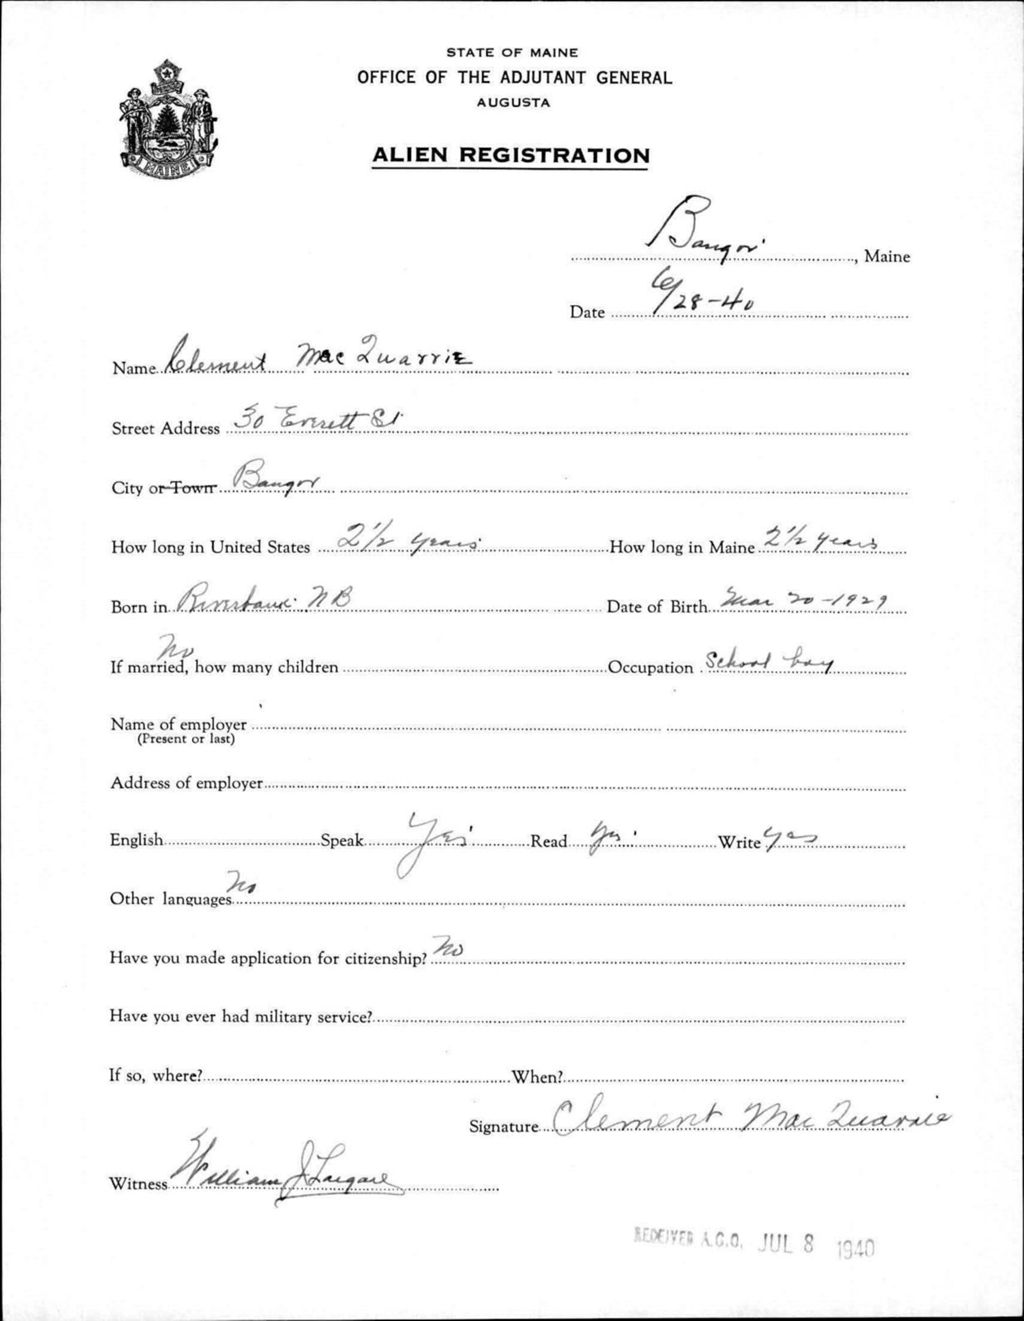 STATE OF MAINE
OFFICE OF THE ADJUTANT GENERAL
AUGUSTA
ALIEN REGISTRATION
MAINE
Bangor, Maine
Date 6/28-40
Name Clement MacQuarrie
Street Address 30 Everett St
City or Town Bangor
How long in United States 2 1/2 years How long in Maine 2 1/2 years
Born in Riverbank NB Date of Birth Mar 20-1929
No
If married, how many children Occupation School boy
Name of employer
(Present or last)
Address of employer
English Speak Yes Read Yes Write Yes
Other languages No
Have you made application for citizenship? No
Have you ever had military service?
If so, where? When?
Signature Clement MacQuarrie
Witness William J
RECEIVED A.G.O. JUL 8 1940